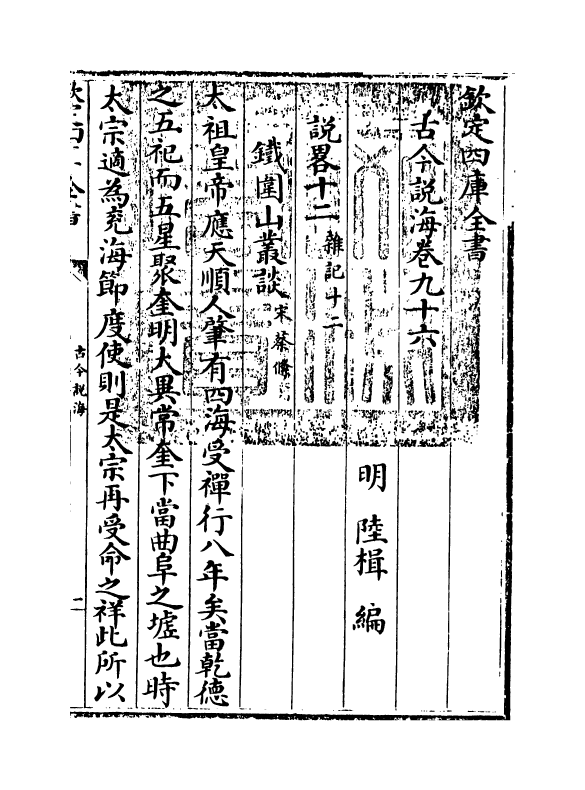 欽定四庫全書
古今說海卷九十六
明 陸楫 編
說畧十二 雜記十二
鐵圍山叢談 宋蔡絛
太祖皇帝應天順人肇有四海受禪行八年矣當乾德
之五祀而五星聚奎明大異常奎下當曲阜之墟也時
太宗適為兖海節度使則是太宗再受命之祥此所以
欽定四庫全書
古今說海